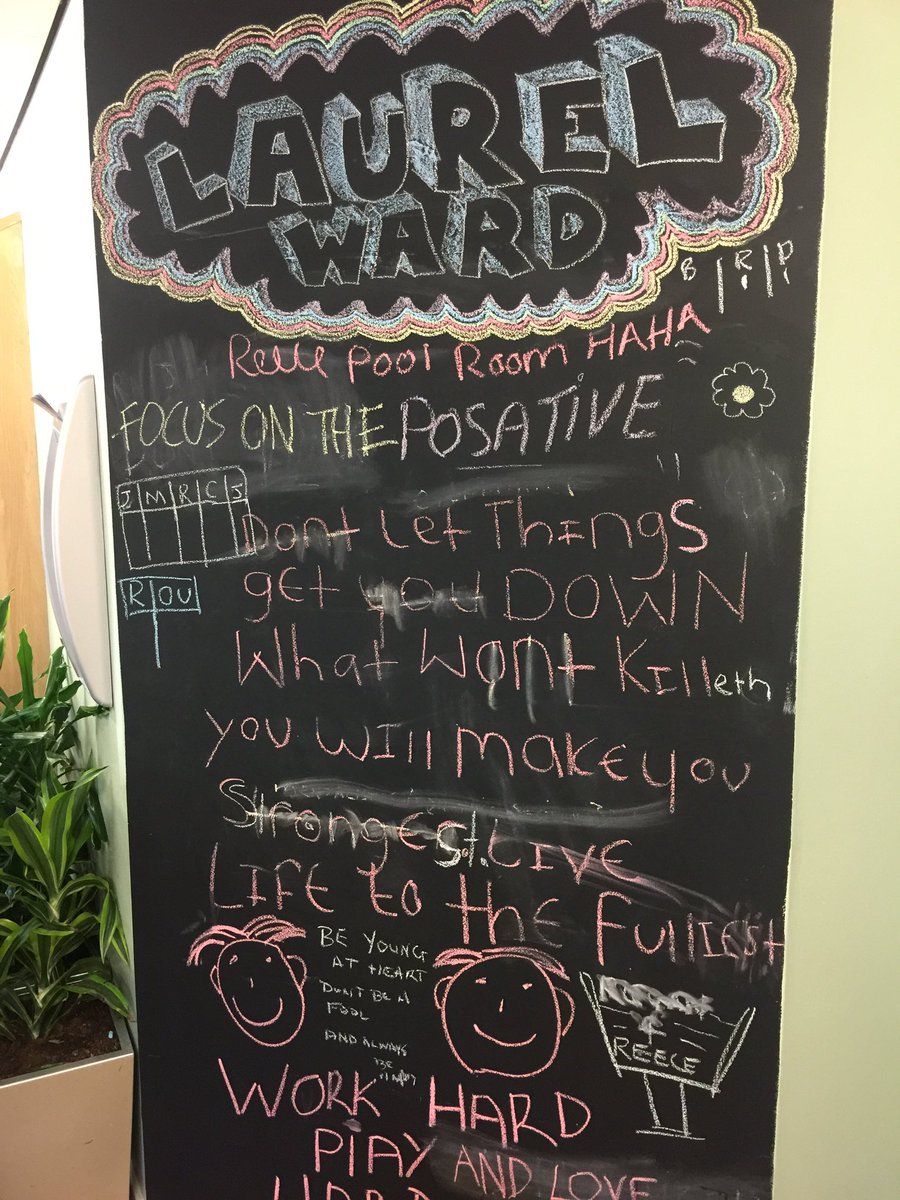 LAUREL
WARD
B R P
Pool Room HAHA
FOCUS ON THE POSATIVE
J M R C J
Dont Let Things
R OU
get you DOWN
What Wont Killeth
you will make you
Strongest. Live
Life to the Fulliest
BE YOUNG
AT HEART
DON'T BE A
FOOL
AND ALWAYS
BE
REECE
WORK HARD
PLAY AND LOVE
HARD